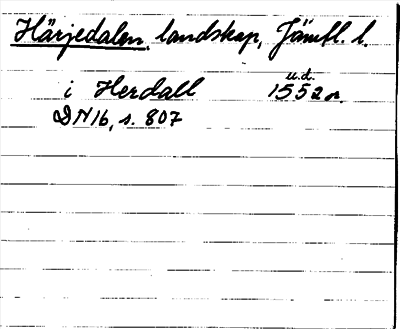 Härjedalen, landskap, Jämtl. l.
u.d.
i Herdall 1552 n.
DN 16, s. 807